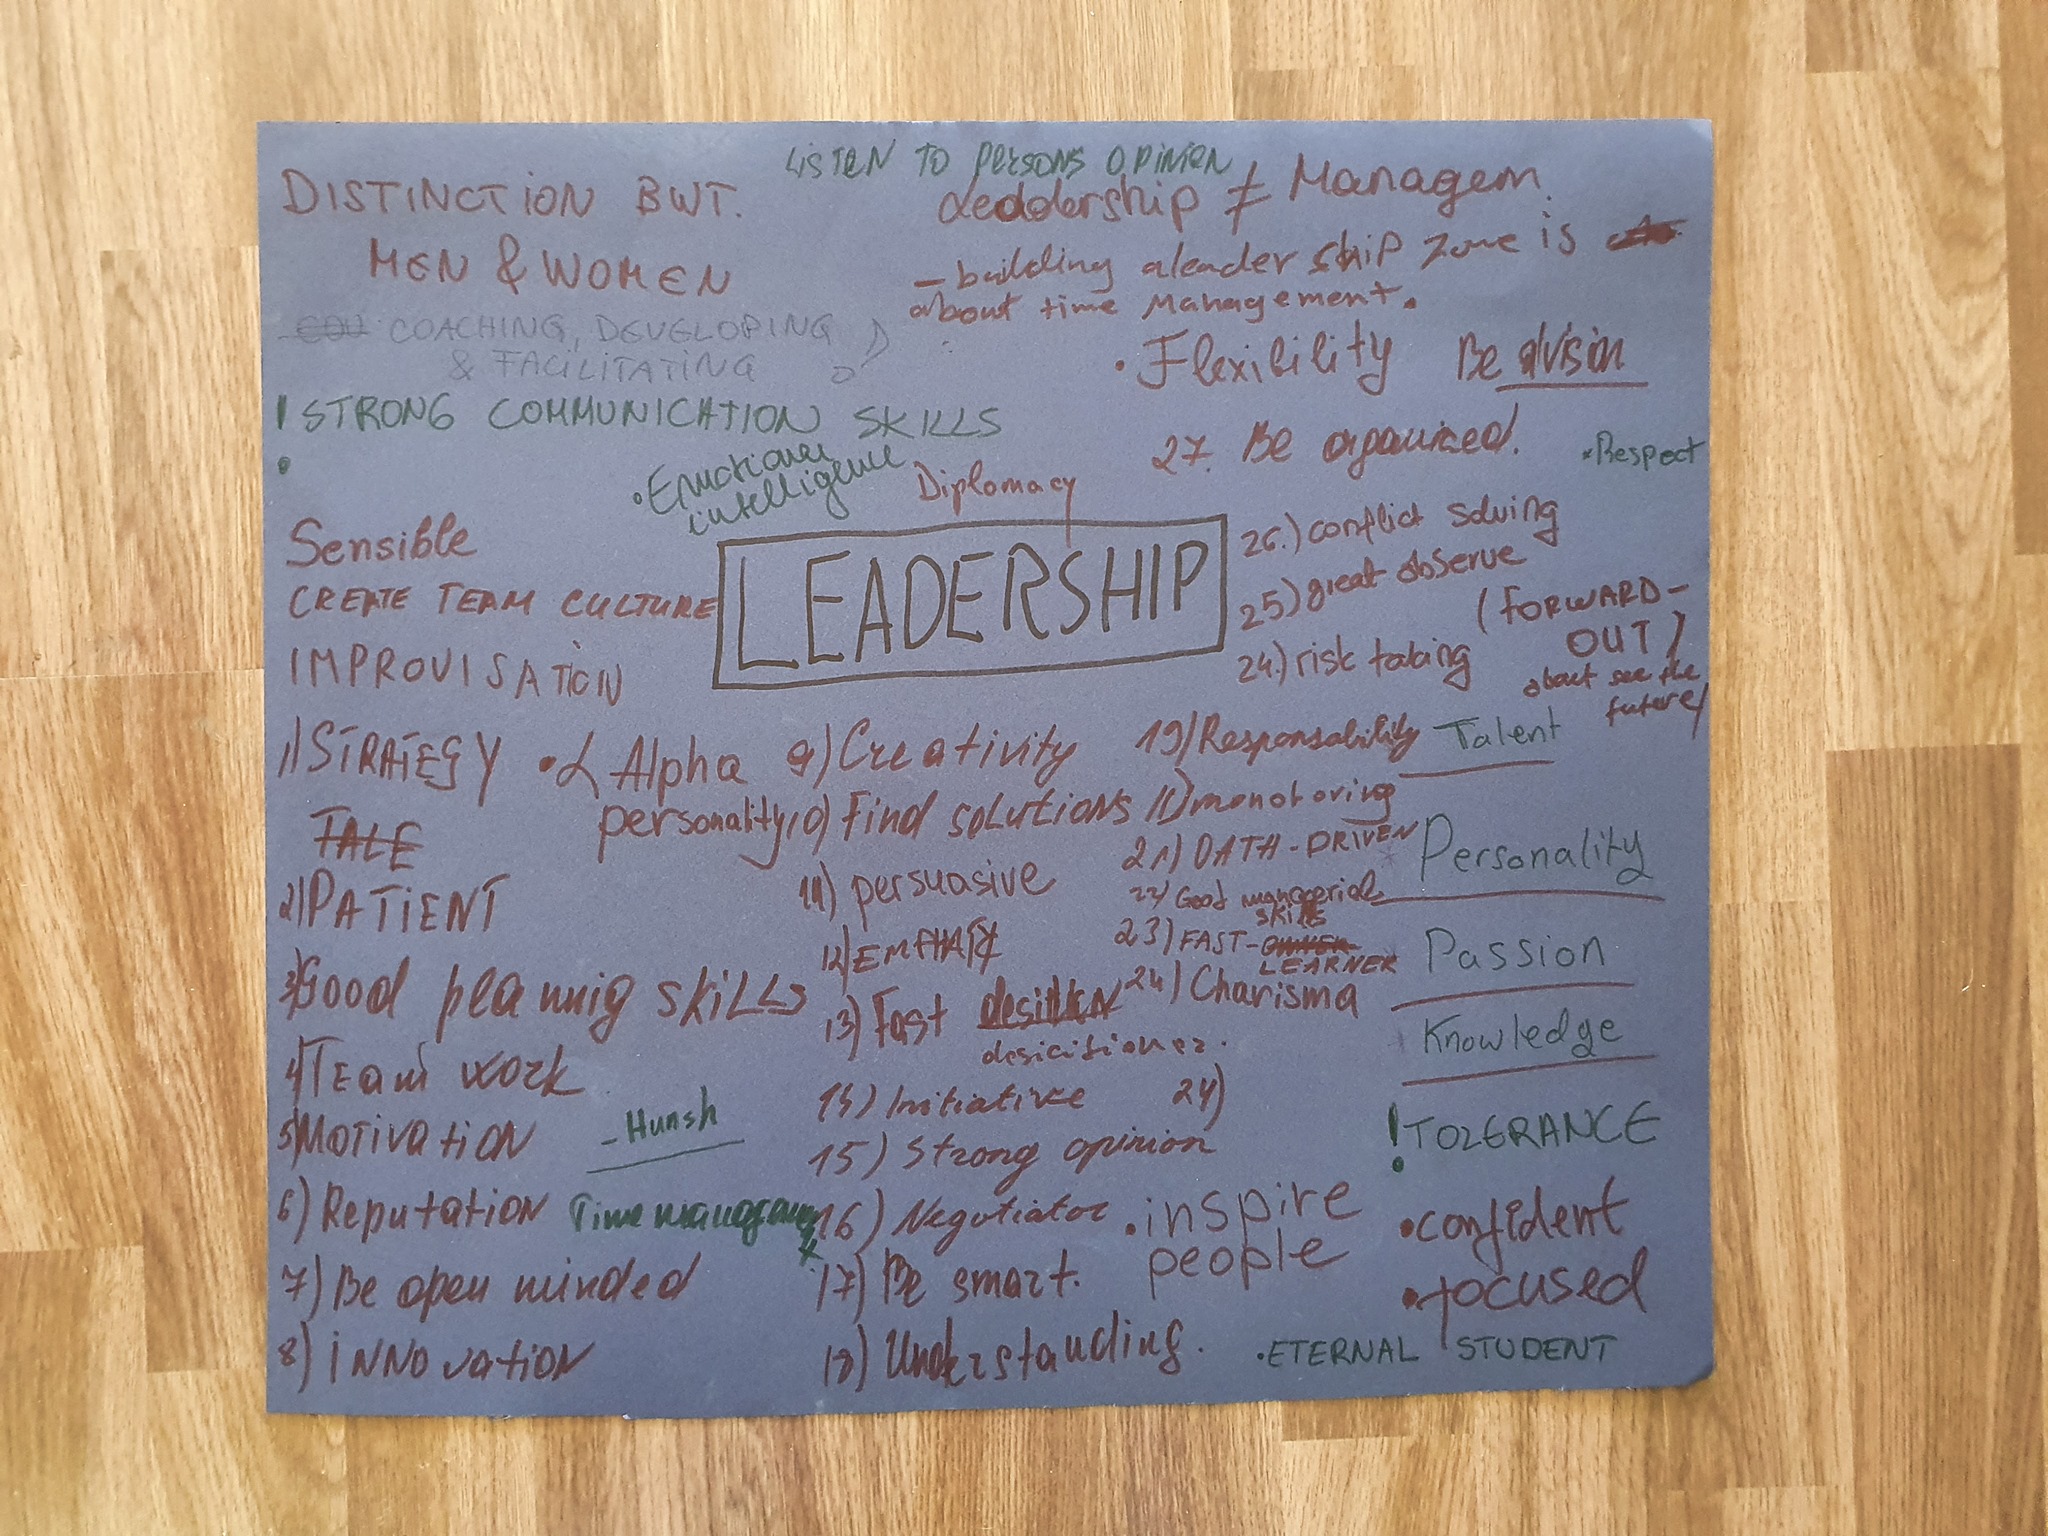 LISTEN TO PERSONS OPINION
DISTINCTION BWT.
MEN & WOMEN
COACHING, DEVELOPING
& FACILITATING
! STRONG COMMUNICATION SKILLS
Leadership ≠ Managem.
– building a leadership zone is
about time management.
• Flexibility
Be avision
27. Be organized.
• Respect
• Emotional
intelligence
Diplomacy
LEADERSHIP
26.) conflict solving
25) great observe
24.) risk taking
(FORWARD-
OUT)
about see the
future)
Sensible
CREATE TEAM CULTURE
IMPROVISATION
1) STRATEGY
TALE
2) PATIENT
3) Good plannig skills
4) TEam work
5) MOTIVATION
6) Reputation
7) Be open minded
8) iNNOvation
• α Alpha
personality
– Hunsh
Time
9) Creativity
10) Find solutions
11) persuasive
12) EMPHATY
13) Fast
desicitioner.
14) Initiative
15) Strong opinion
16) Negotiator
17) Be smart.
18) Understanding.
19) Responsability
monotoring
21) DATA-DRIVEN
22) Good managerial
skills
23) FAST-
LEARNER
24) Charisma
24)
• inspire
people
Talent
Personality
Passion
Knowledge
! TOLERANCE
• confident
• focused
• ETERNAL STUDENT